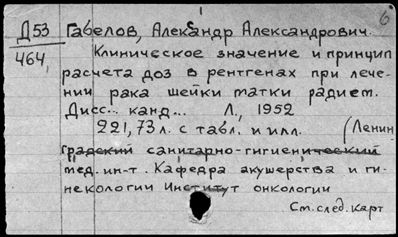 6
Д53 Габелов, Александр Александрович.
464 Клиническое значение и принцип
расчета доз в рентгенах при лече-
нии рака шейки матки радием.
Дисс... канд... Л., 1952
221,73 л. с табл. и илл. (Ленин
градский санитарно-гигиенический
мед. ин-т. Кафедра акушерства и ги-
некологии Институт онкологии
См. след. карт